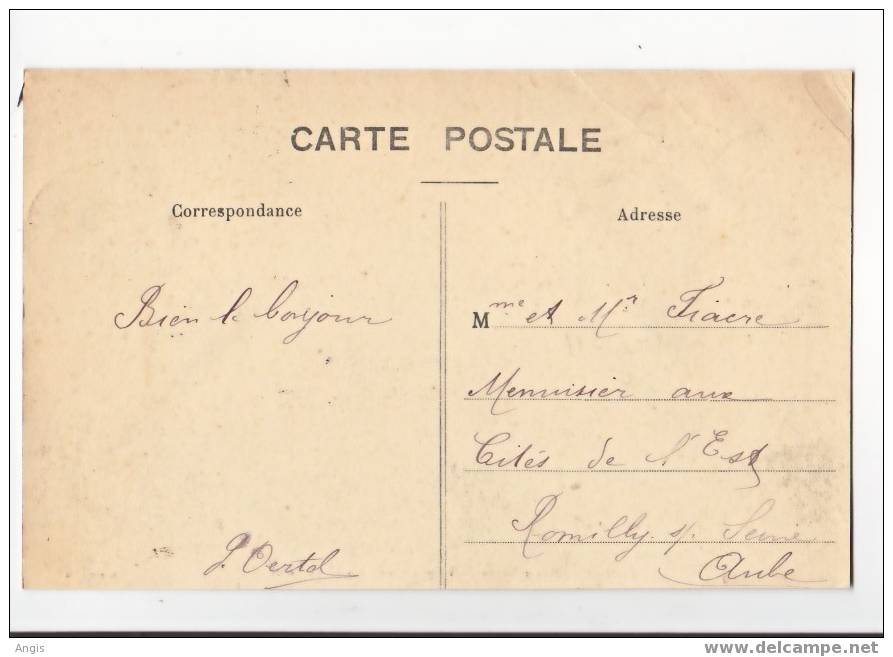 CARTE POSTALE
Correspondance
Adresse
Bien le bonjour
Mme et Mr Fiacre
Menuisier aux
Cités de l'Est
Romilly s/ Seine
Aube
Oertel
Angis
www.delcampe.net